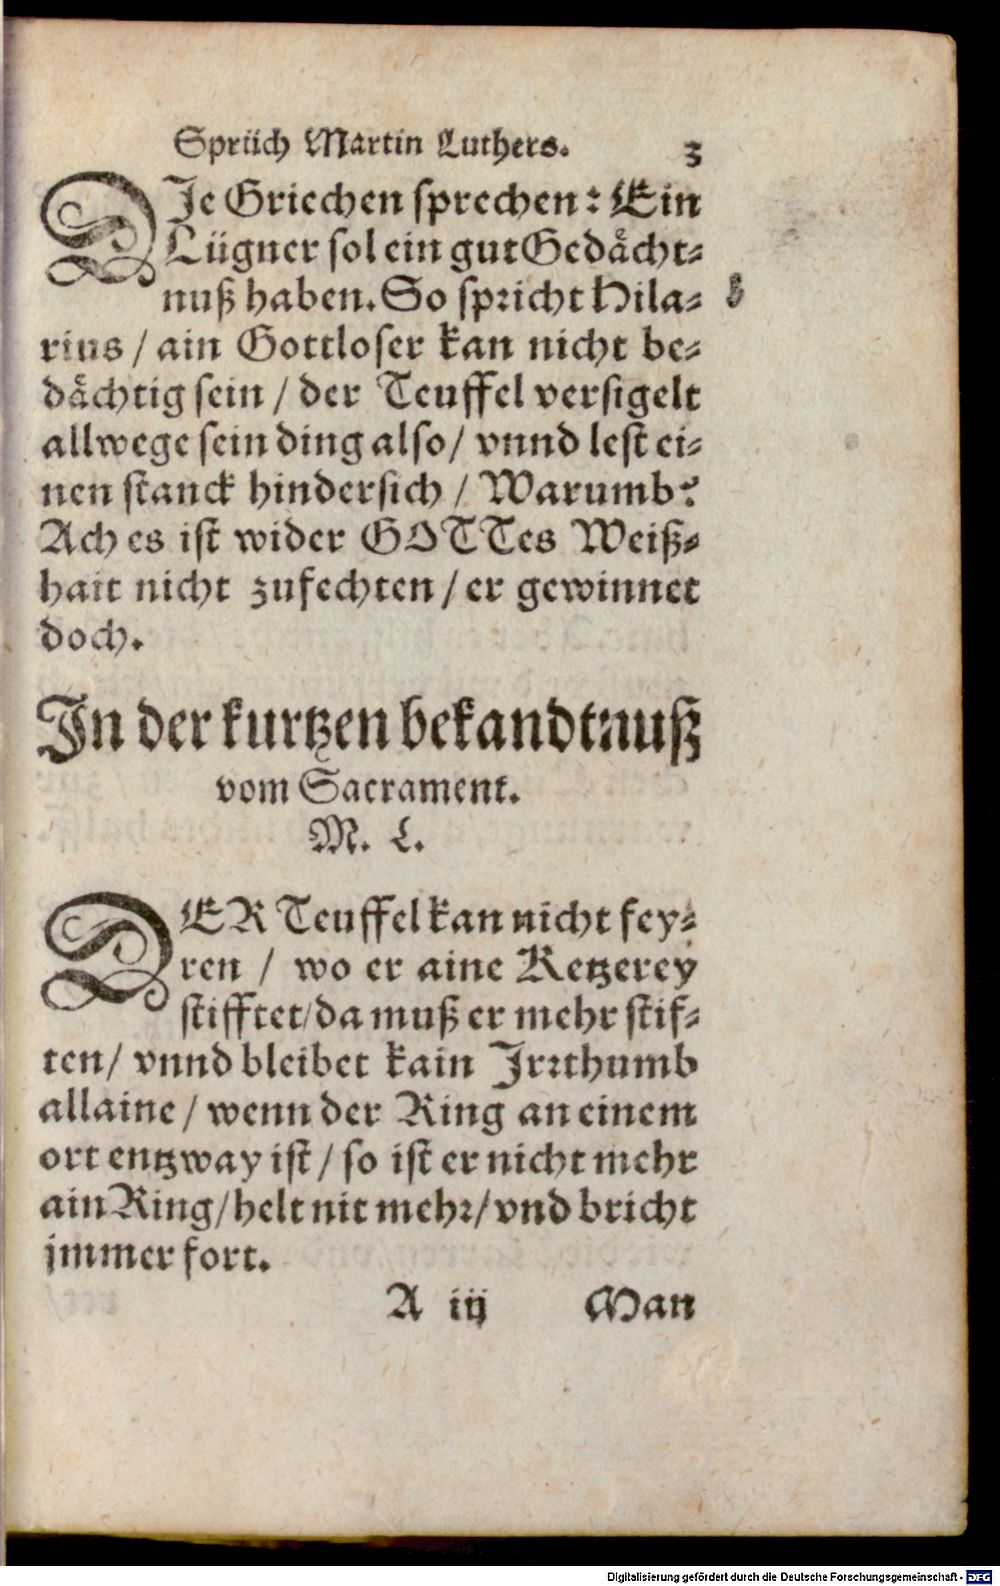 Sprüch Martin Luthers. 3
DJe Griechen sprechen: Ein
Lügner sol ein gut Gedächt-
nuß haben. So spricht Hila-
rius / ain Gottloser kan nicht be-
dächtig sein / der Teuffel versigelt
allwege sein ding also / vnnd lest ei-
nen stanck hindersich / Warumb?
Ach es ist wider GOTTes Weiß-
hait nicht zufechten / er gewinnet
doch.
In der kurtzen bekandtnuß
vom Sacrament.
M. L.
DER Teuffel kan nicht fey-
ren / wo er aine Ketzerey
stifftet / da muß er mehr stif-
ten / vnnd bleibet kain Jrrthumb
allaine / wenn der Ring an einem
ort entzway ist / so ist er nicht mehr
ain Ring / helt nit mehr / vnd bricht
jmmer fort.
A iij Man
Digitalisierung gefördert durch die Deutsche Forschungsgemeinschaft - DFG